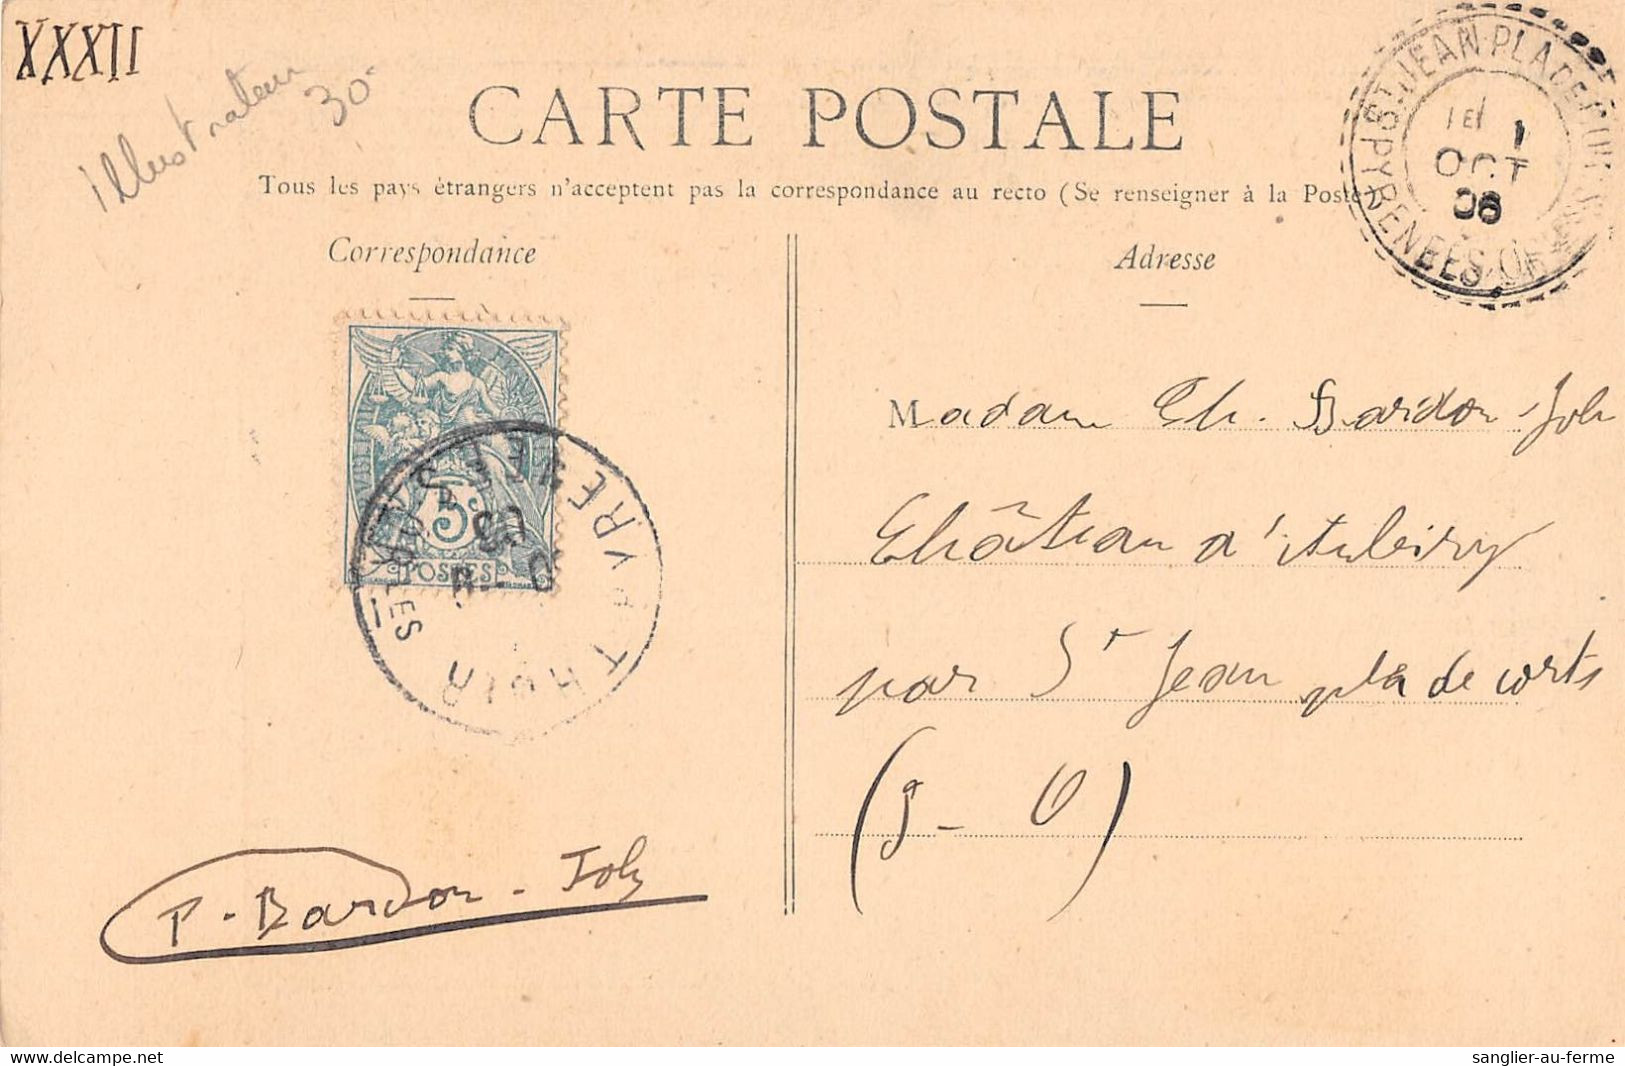 XXXII
Illustrateur
30
CARTE POSTALE
Tous les pays étrangers n'acceptent pas la correspondance au recto (Se renseigner à la Poste)
Correspondance
Adresse
ST JEAN-PLA-DE
PYRENEES-OR
1E
1
OCT
08
5c
POSTES
THUIR
PYRENEES
Madame Ch. Bardon-Job
Château d'Aubiry
par St Jean pla de corts
(P-O)
P-Bardon-Job
delcampe.net
sanglier-au-ferme